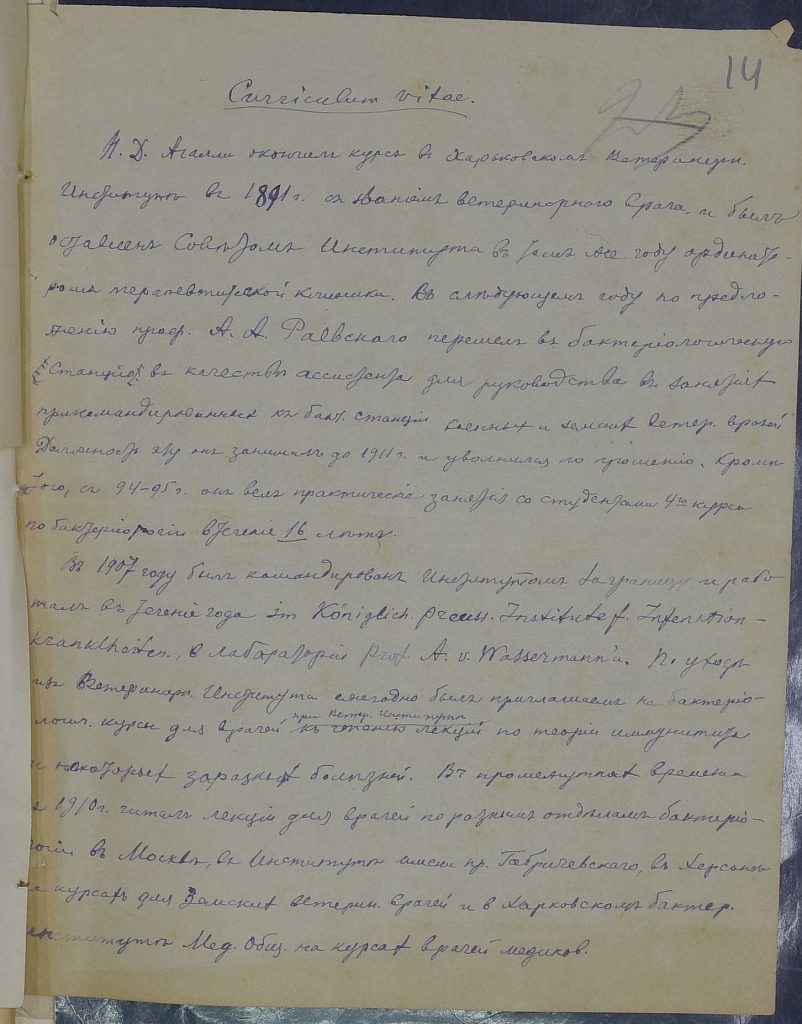 14
Curriculum vitae.
Н. Д. Агалли окончилъ курсъ въ Харьковскомъ Ветеринарн.
Институтѣ въ 1891 г. съ званіемъ ветеринарного врача. и былъ
оставленъ Совѣтомъ Института въ томъ же году ордината-
ромъ терапевтической клиники. Въ слѣдующемъ году по предло-
женію проф. А. А. Раевского перешелъ въ бактеріологическую
Станцію въ качествѣ ассистента для руководства въ занятіях
прикомандированныхъ къ бакт. станціи военных и земских ветер. врачей
Должность эту онъ занималъ до 1911 г. и уволился по прошенію. Кромѣ
того, съ 94-95 г. онъ велъ практическіе занятія со студентами 4го курса
по бактеріологіи втеченіе 16 лѣтъ.
Въ 1907 году былъ командированъ Институтомъ заграницу и рабо-
талъ въ теченіе года im Königlich. Preuss. Institute f. Infenstion-
krankheiten., в лабораторіи Prof. A. v. Wassermann'а. По уходѣ
изъ Ветеринарн. Института ежегодно былъ приглашаемъ на бактеріо-
логич. курсы для врачей при Ветер. Институтѣ къ чтенію лекцій по теоріи иммунитета
и некоторых заразных болѣзней. Въ промежутках времени
1910 г. читалъ лекціи для врачей по разнымъ отдѣламъ бактеріо-
логіи въ Москвѣ, въ Институтѣ имени пр. Габричевского, въ Херсонѣ
на курсахъ для Земских ветерин. врачей и в Харковскомъ бактер.
институтѣ Мед. Общ. на курсах врачей медиков.